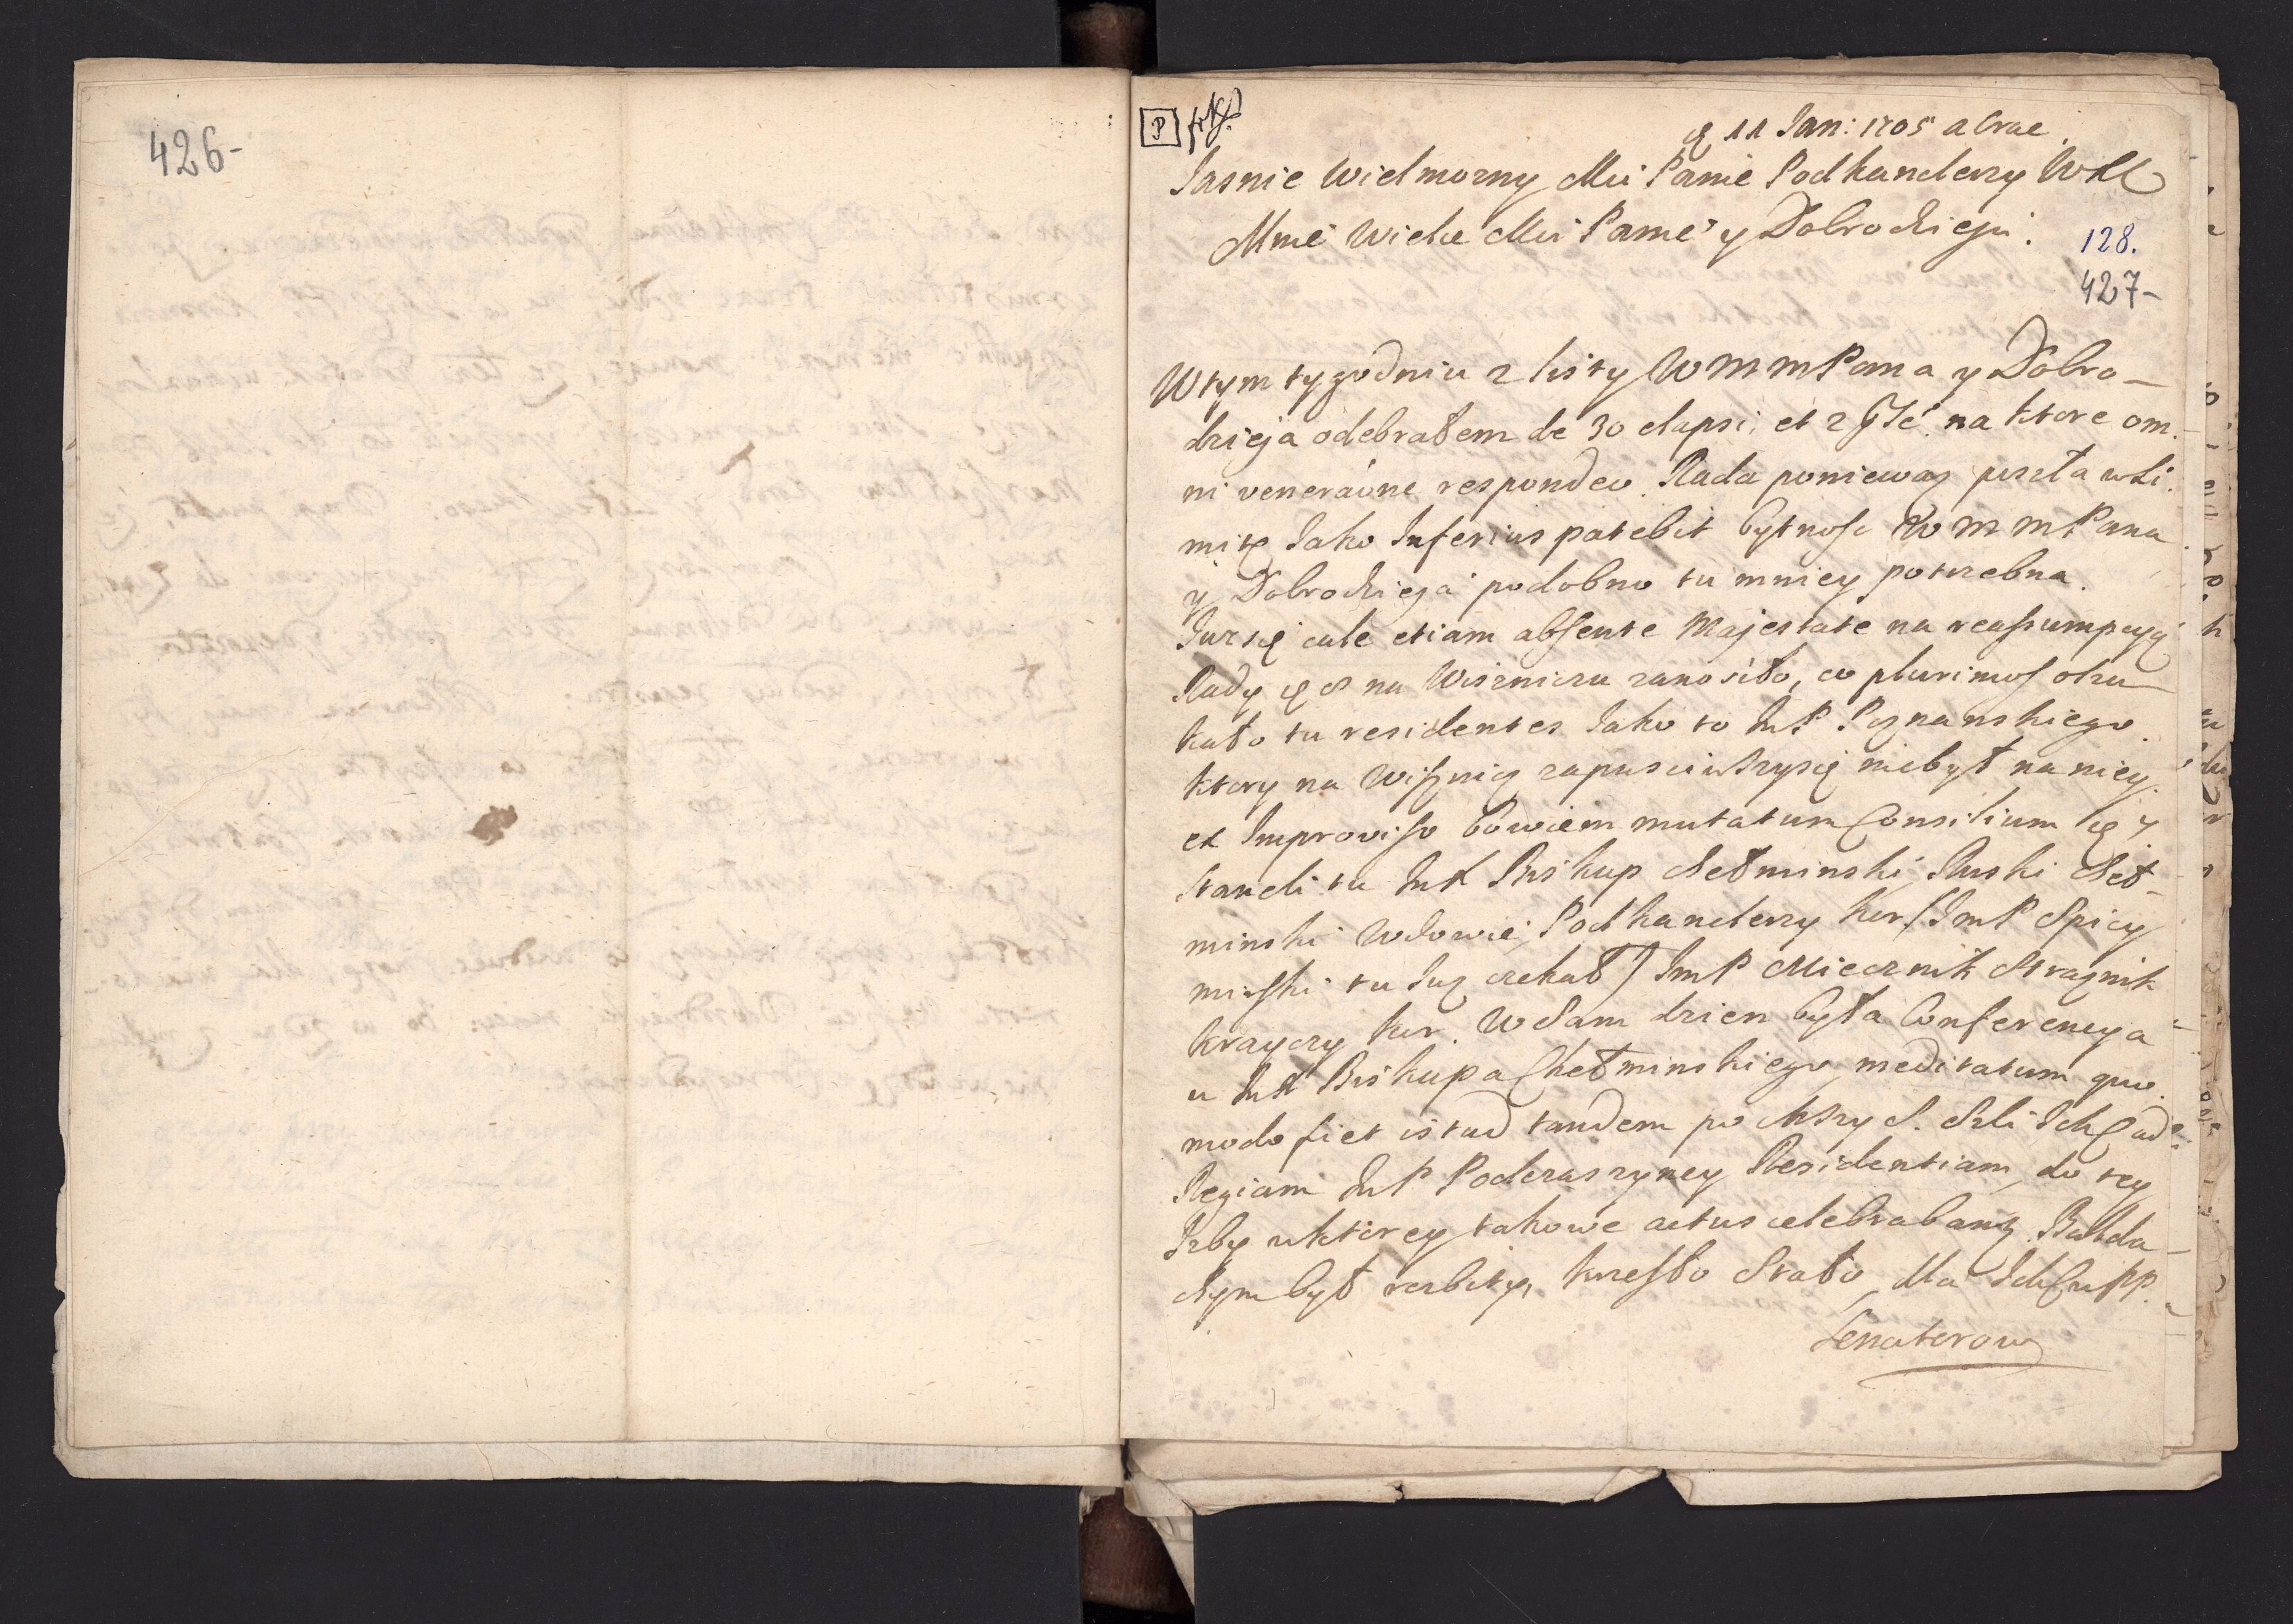 426-
P
11 Jan: 1705 a Crac.
Jasnie Wielmozny Mci Panie Podkanclerzy WXL
Mnie Wielce Mci Panie y Dobrodzieju.
128.
427-
W tym tygodniu 2 listy WMMPana y Dobro-
dzieja odebrałem de 30 elapsi, et 2 na ktore om-
ni veneraone respondeo. Rada poniewaz poszła w Li-
mitę Jako Inferius patebit bytnosc WMMPana
y Dobrodzieja podobno tu mniey potrzebna.
Juz się cale etiam absente Majestate na reassumpcyą
Rady 8 na Wiszniczu zanosiło, co plurimos oszu-
kało tu residentes Jako to ImP Poznanskiego
ktory na Wisznicz zapusciwszysię niebył na niey.
ex Improviso bowiem mutatum Consilium 7
staneli tu ImX Biskup Chełminski, Ruski Cheł-
minski Wdowie, Podkanclerzy kor. (ImP Spicy
mirski tu Juz czekał) ImP Miecznik Straznik
krayczy kor. W Sam dzien była Conferencya
u ImX Biskupa Chełminskiego, meditatum quo
modo fiet istud tandem po Mszy S. szli IchC ad
Regiam ImP Podczaszyney Residentiam, do tey
Izby w ktorey takowe actus celebrabant, Balda-
chym był rozbity, krzesło stało, dla IchCiuPP.
Senatorow